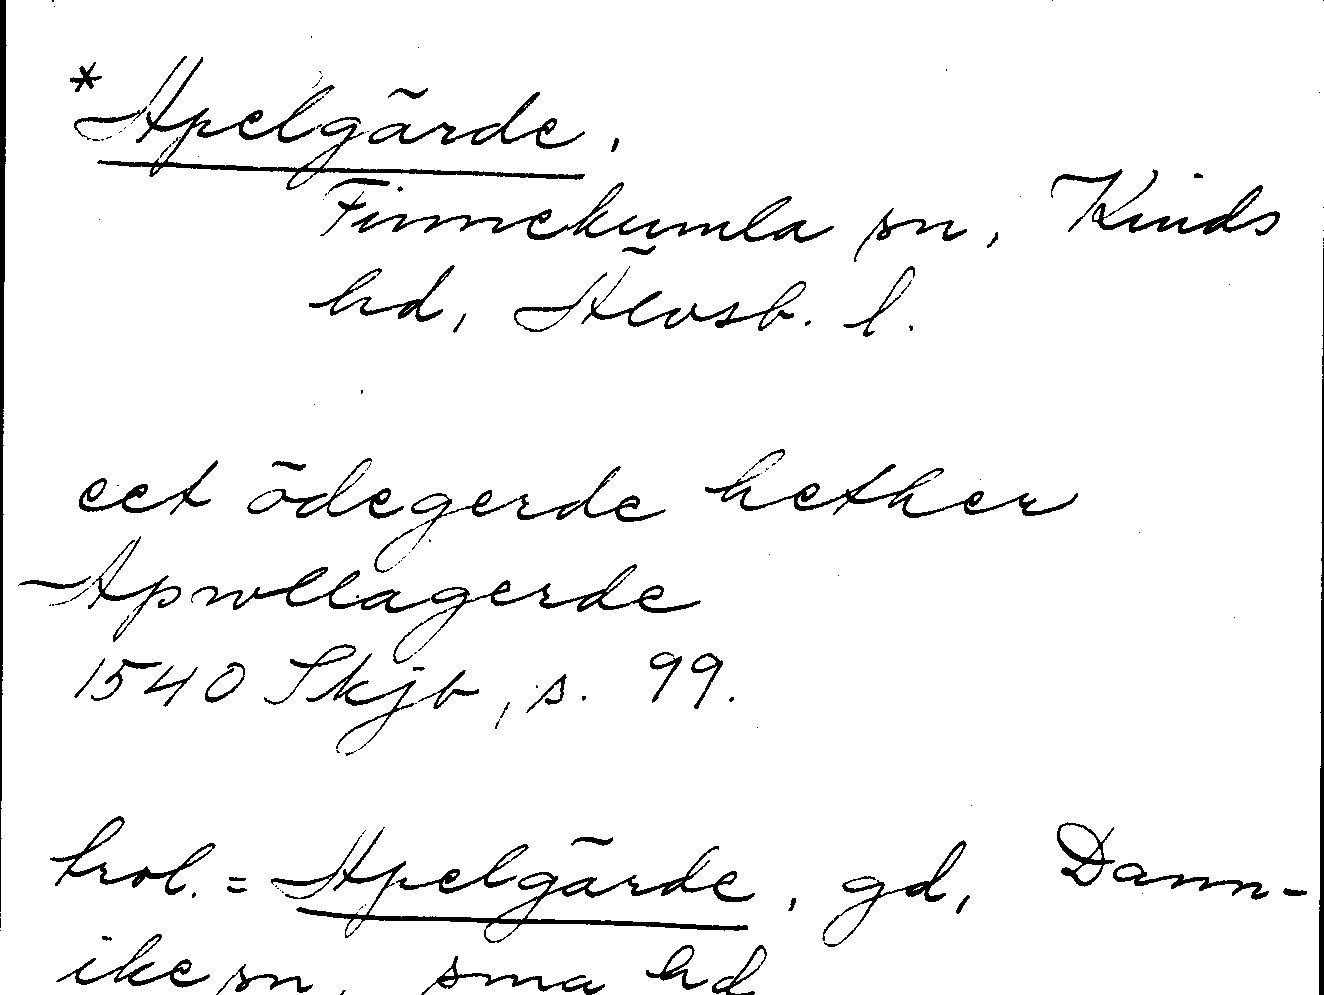 *Apelgärde,
Finnekumla sn, Kinds
hd, Älvsb. l.
eet ödegerde hether
Apwllagerde
1540 Skjb, s. 99.
trol. = Apelgärde, gd, Dann-
ike sn, sma hd